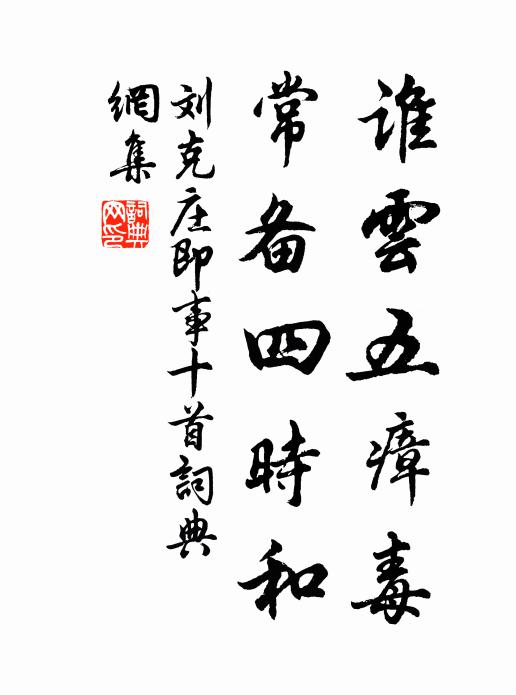 誰雲五瘴毒
常备四時和
刘克庄即事十首詞典
網集
詞典
网印